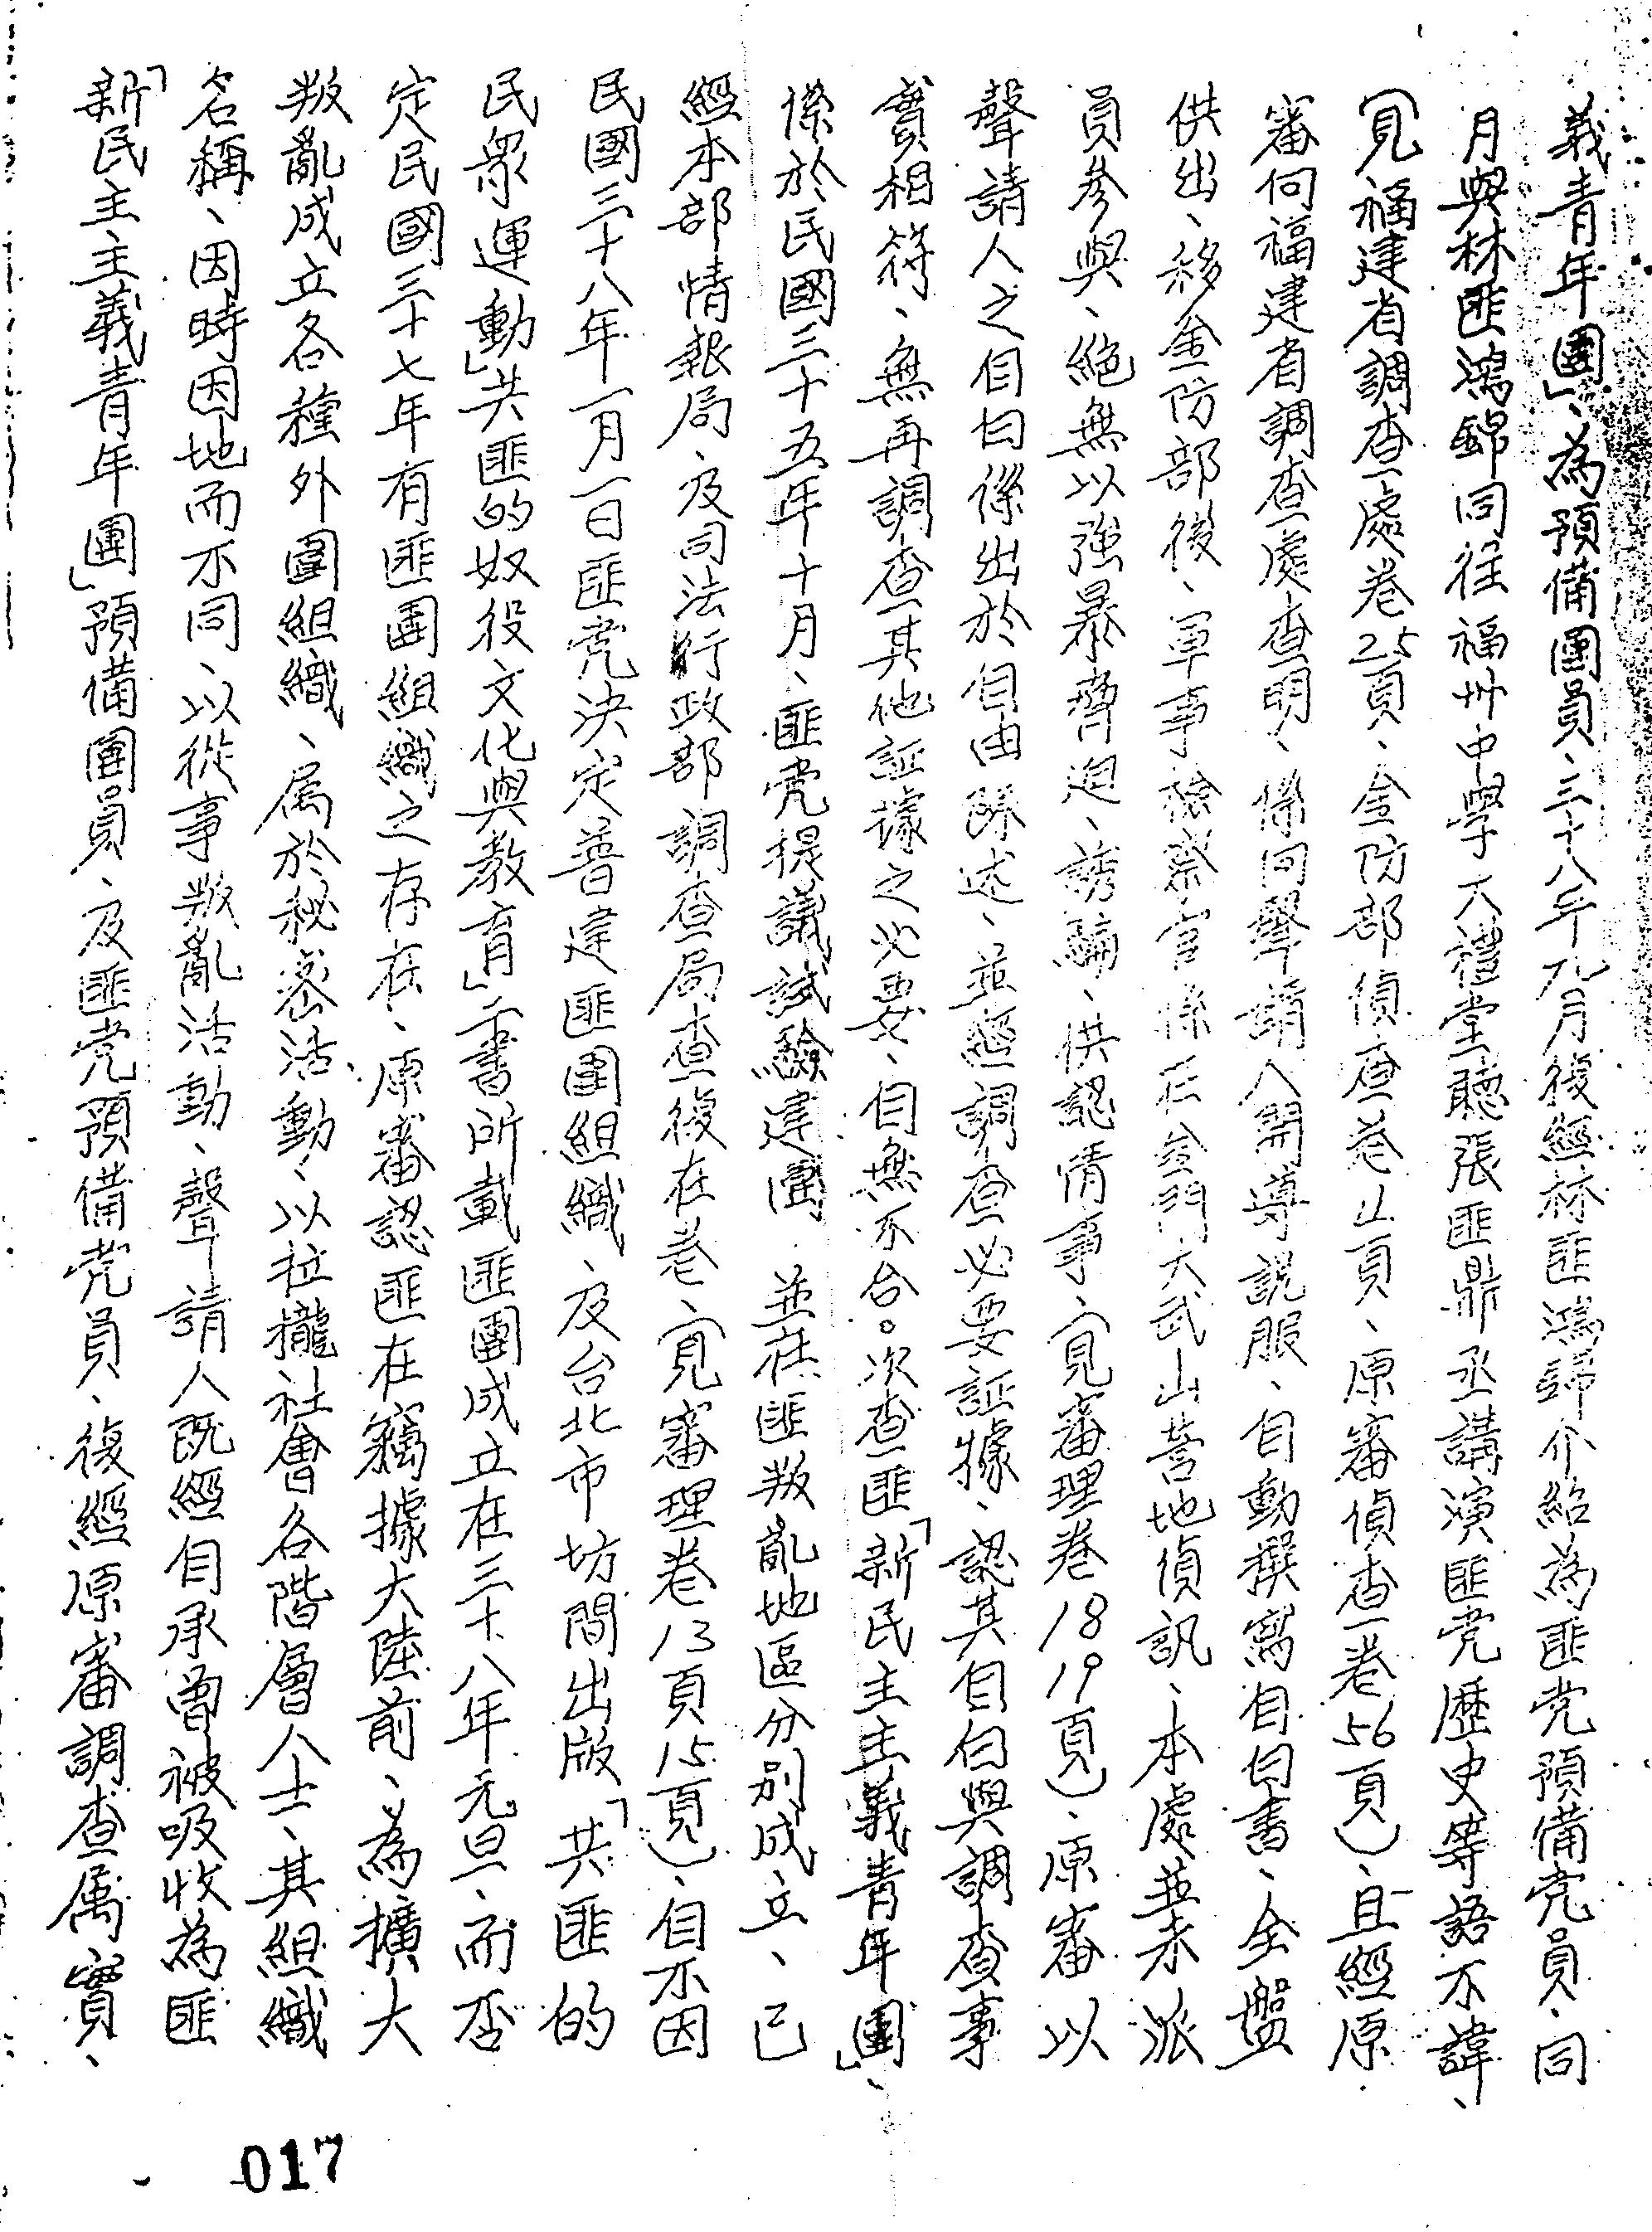 義青年團」、為預備團員、三十八年九月後經林匪鴻錦介紹為匪党預備党員、同
月與林匪鴻錦同往福州中學大禮堂聽張匪鼎丞講演匪党歷史等語不諱、
(見福建省調查處卷25頁、金防部偵查卷11頁、原審偵查卷56頁)、且經原
審向福建省調查處查明、係向聲請人開導説服、自動撰寫自白書、全盤
供出、移金防部後、軍事檢察官係在金門太武山營地偵訊、本處並未派
員參與、絕無以強暴脅迫、誘騙、供認情事、(見審理卷18 19頁)、原審以
聲請人之自白係出於自由陳述、並經調查必要証據、認其自白與調查事
實相符、無再調查其他証據之必要、自無不合。次查匪「新民主主義青年團」、
係於民國三十五年十月、匪党提議試驗建團 並在匪叛亂地區分別成立、已
經本部情報局、及司法行政部調查局查復在卷、(見審理卷13頁15頁)、自不因
民國三十八年一月一日匪党決定普建匪團組織、及台北市坊間出版「共匪的
民眾運動」「共匪的奴役文化與教育」二書所載匪團成立在三十八年元旦、而否
定民國三十七年有匪團組織之存在、原審認匪在竊據大陸前、為擴大
叛亂成立各種外圍組織、属於秘密活動、以拉攏社會各階層人士、其組織
名稱、因時因地而不同、以從事叛亂活動、聲請人既經自承曾被吸收為匪
「新民主主義青年團」預備團員、及匪党預備党員、復經原審調查属實、
017